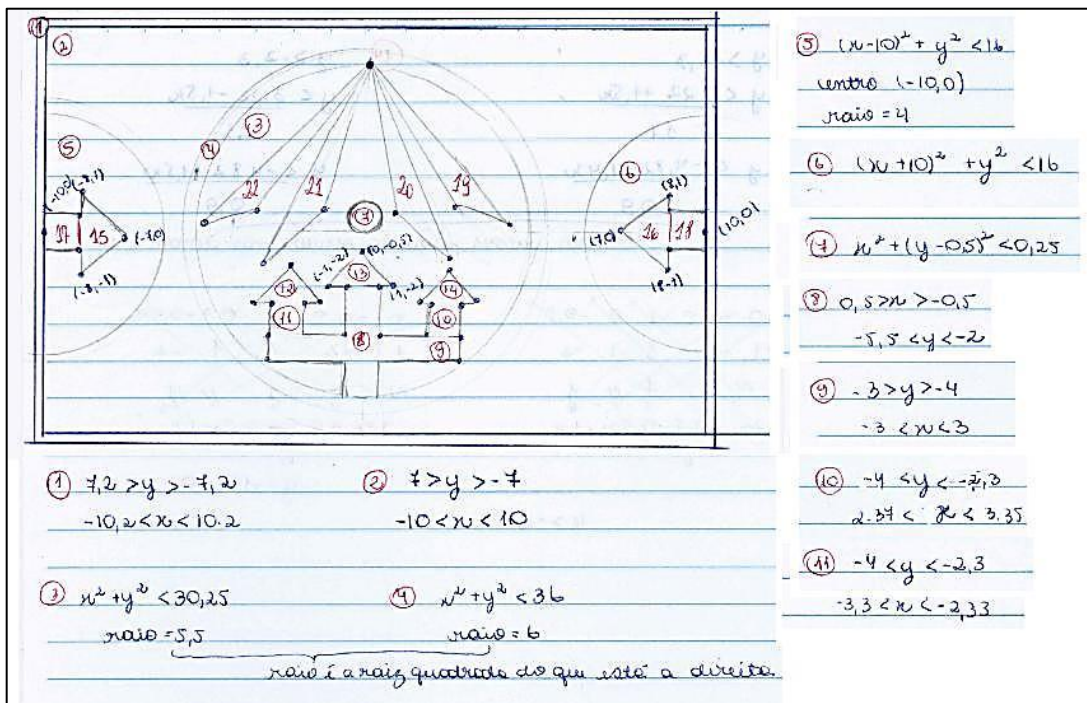 1
2
3
4
5
6
7
22
21
20
19
(-10,0)
(-8,1)
17
15
(-7,0)
(-8,-1)
(8,1)
(7,0)
16
18
(10,0)
(8-1)
(-1,-2)
(0,-0,5)
13
(1,-2)
12
11
14
10
8
9
1 7,2 >y >-7,2
-10,2<x<10.2
2 7 >y >-7
-10 <x <10
3 x² +y² <30,25
raio =5,5
4 x² +y² <36
raio = 6
raio é a raiz quadrada do que está a direita.
5 (x-10)² + y² <16
centro (-10,0)
raio = 4
6 (x+10)² +y² <16
7 x² +(y-0,5)² <0,25
8 0,5>x >-0,5
-5,5 <y <-2
9 -3 >y >-4
-3 <x <3
10 -4 <y <-2,3
2.37 < x < 3.35
11 -4 <y <-2,3
-3,3 <x <-2,33